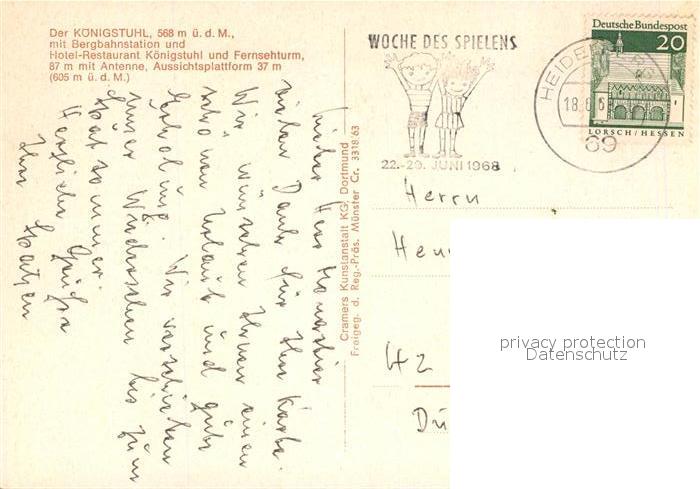 Der KÖNIGSTUHL, 568 m ü. d. M.,
mit Bergbahnstation und
Hotel-Restaurant Königstuhl und Fernsehturm,
87 m mit Antenne, Aussichtsplattform 37 m
(605 m ü. d. M.)
WOCHE DES SPIELENS
22.-29. JUNI 1968
Deutsche Bundespost
20
LORSCH/HESSEN
18.6.6
69
Lieber Herr
vielen Dank für Ihre Karte.
Wir wünschen Ihnen einen
schönen Urlaub und gute
Erholung. Wir verschieben
unser Wiedersehen bis zum
Spätsommer.
Herzliche Grüße
Ihre
Cramers Kunstanstalt KG. Dortmund
Freigeg. d. Reg.-Präs. Münster Cr. 3318/63
Herrn
privacy protection
Datenschutz